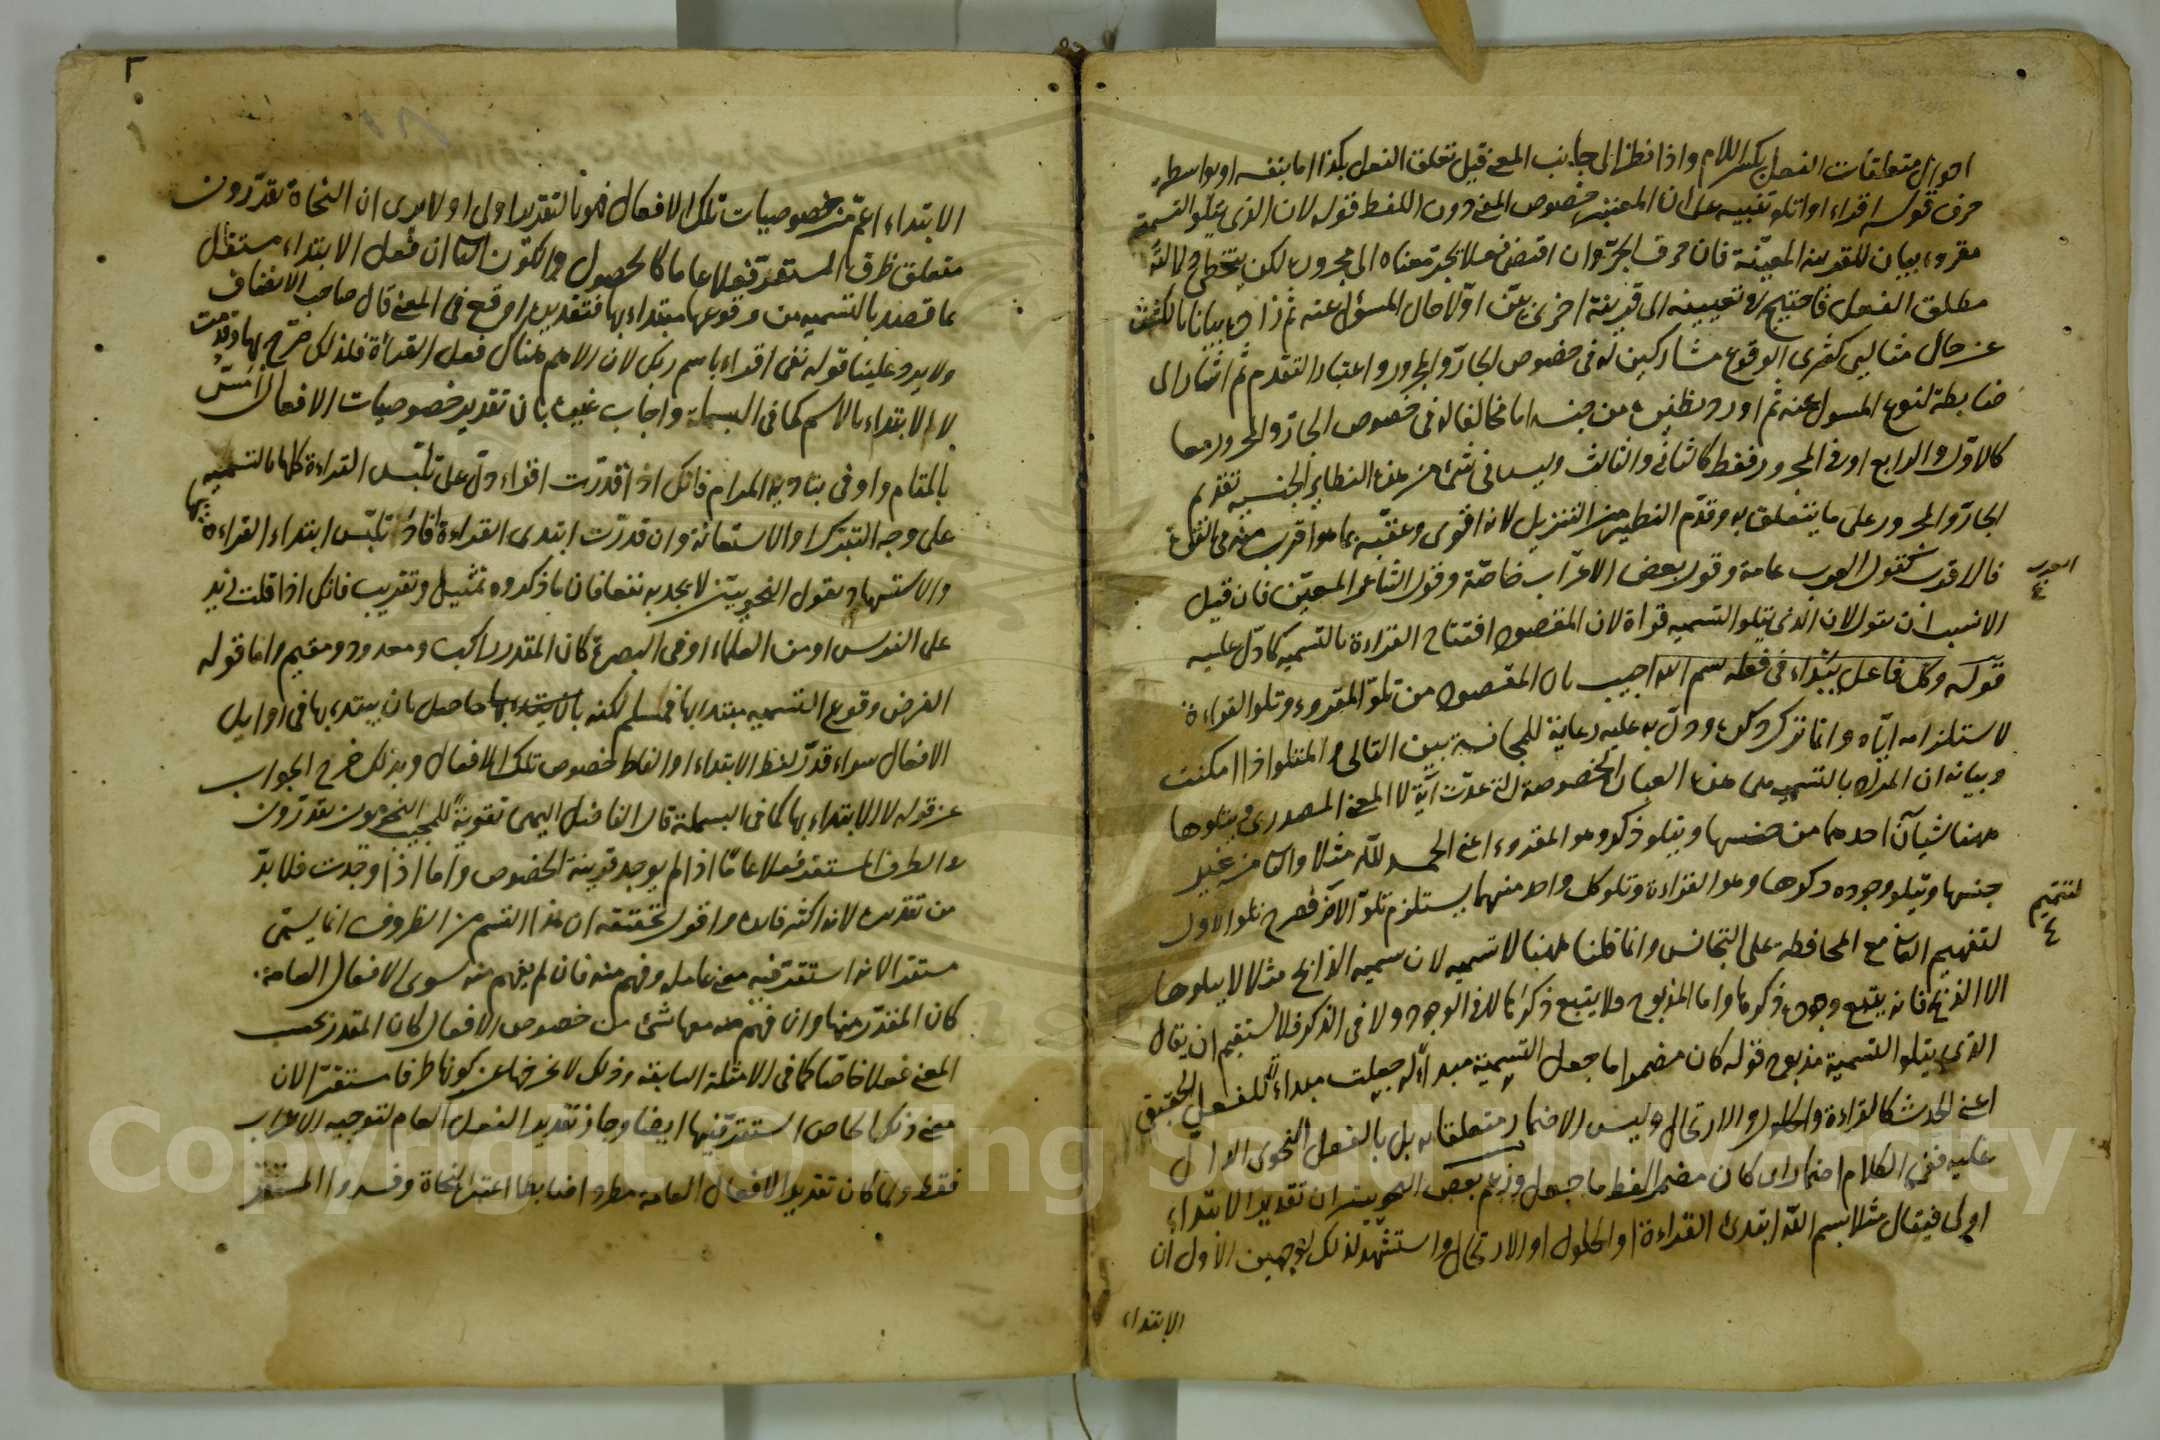 احوال متعلقات الفعل بكسر اللام واذا نظر الى جانب المعنى قيل تعلق الفعل بكذا اما بنفسه او بواسطة
حرف قوله اقراء او اتلو تنبيه على ان المعتبر خصوص المعنى دون اللفظ قوله لان الذى يتلو التسمية
مقروء بيان للقرينة المعينة فان حرف الجر وان اقتضى فعلا يجر معناه الى مجروره لكن
مطلق الفعل فاحتيج فى تعيينه الى قرينة اخرى بين اولا حال المسؤل عنه ثم زاده بيانا بالكشف
عن حال مثالين كثيرى الوقوع مشاركين له فى خصوص الجار والمجرور واعتبار التقدم ثم اشار الى
ضابطة لنوع المسول عنه ثم اورد نظيره من جنسه اما مخالفا له فى خصوص الجار والمجرور معا
كالاول والرابع او فى المجرور فقط كالثانى والثالث وليس فى شئ من هذه النظاير الجنسية تقديم
الجار والمجرور على ما يتعلق به وقدم النظير من التنزيل لانه اقوى وعقبه بما هو اقرب
فالاقرب كقول العرب عامة وقول بعض الاعراب خاصة وقول الشاعر المعين فان قيل
العرب
الانسب ان يقول لان الذى يتلو التسميه قراة لان المقصود افتتاح القراءة بالتسميه كما دل عليه
قوله وكل فاعل يبتداء فى فعله بسم الله اجيب بان المقصود من تلو المقروء وتلو القراءة
لاستلزامه اياه وانما ترك ذكره ودل به عليه رعاية للمجانسة بين التالى والمتلو اذا امكنت
وبيانه ان المراد بالتسميه هى هذه العبارة المخصوصة التى عدت آية لا المعنى المصدرى ويتلوها
ههنا شيآن احدهما من جنسها ويتلو ذكره وهو المقروء اعنى الحمد لله مثلا والثانى من غير
جنسها ويتلو وجوده ذكرها وهو القراءة وتلو كل واحد منهما يستلزم تلو الآخر فصرح بتلو الاول
لتفهيم الثانى مع المحافظة على التجانس وانما قلنا ههنا لان تسميه الذابح مثلا لا يتلوها
الا الذبح فانه يتبع وجوده ذكرها واما المذبوح فلا يتبع ذكرها لا فى الوجود ولا فى الذكر فلا يستقيم ان يقال
الذى يتلو التسمية مذبوح قوله كان مضمرا ما جعل التسمية مبداء له جعلت مبداء للفعل الحقيقى
اعنى الحدث كالقراءة والحلول والارتحال وليس الاضمار متعلقا به بل بالفعل النحوى الدال
عليه ففى الكلام اضمار اى كان مضمر الفظ ما جعل وزعم بعض النحويين ان تقدير الابتداء
اولى فيقال مثلا بسم الله ابتدئ القراءة او الحلول او الارتحال واستشهد لذلك بوجهين الاول ان
الابتداء
٢
الابتداء اعم من خصوصيات تلك الافعال فهو بالتقدير اولى الا يرى ان النحاة يقدرون
متعلق ظرف المستقر فعلا عاما كالحصول والكون الثانى ان فعل الابتداء مستقل
بما قصد بالتسميه من وقوعها مبتداء بها فتقديره اوقع فى المعنى قال صاحب الانتصاف
ولا يرد علينا قوله تعالى اقراء باسم ربك لان الاهم هناك فعل القراءة فلذلك صرح بها وقدمت
لا الابتداء بالاسم كما فى البسملة واجاب غيره بان تقدير خصوصيات الافعال امس
بالمقام واوفى بتادية المرام فانك اذا قدرت اقراء دل على تلبس القراءة كلها بالتسميه
على وجه التبرك او الاستعانة وان قدرت ابتدى القراءة افاد تلبس ابتداء القراءة بها
والاستشهاد بقول النحويين لا يجديه نفعا فان ما ذكروه تمثيل وتقريب فانك اذا قلت زيد
على الفرس او من العلماء او فى البصرة كان المقدر راكب ومعدود ومقيم واما قوله
الغرض وقوع التسميه مبتداء بها فمسلم لكنه حاصل بان يبتداء بها فى اوايل
الافعال سواء قدر لفظ الابتداء او الفاظ خصوص تلك الافعال وبذلك خرج الجواب
عن قوله لا الابتداء بها كما فى البسملة قال الفاضل اليمنى تقوية للمجيب النحويون يقدرون
فى الظرف المستقر فعلا عاما اذا لم يوجد قرينة الخصوص واما اذا وجدت فلا بد
من تقديره لانه اكثر فايدة واقول تحقيقه ان هذا القسم من الظروف انما يسمى
مستقرا لانه استقر فيه معنى عامله وفهم منه فان لم يفهم منه سوى الافعال العامة
كان المقدر منها وان فهم معه معها شئ من خصوص الافعال كان المقدر بحسب
المعنى فعلا خاصا كما فى الامثلة السابقة وذلك لا يخرجها عن كونها ظرفا مستقرا لان
معنى ذلك الخاص استقر فيها ايضا وجاز تقدير الفعل العام لتوجيه الاعراب
فقط ولما كان تقدير الافعال العامة مطردا ضابطا اعتبره النحاة وفسروا المستقر